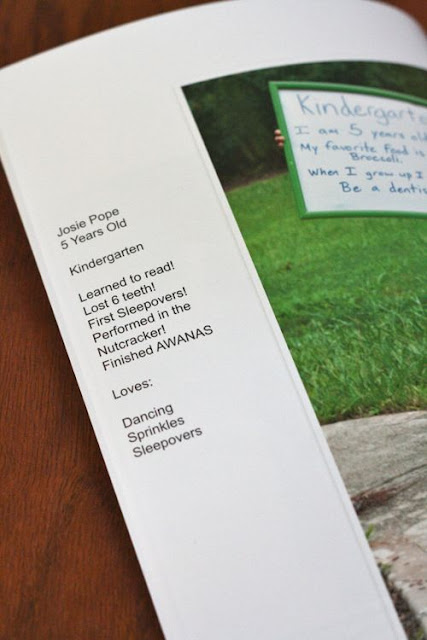 Josie Pope
5 Years Old
Kindergarten
Learned to read!
Lost 6 teeth!
First Sleepovers!
Performed in the
Nutcracker!
Finished AWANAS
Loves:
Dancing
Sprinkles
Sleepovers
Kindergarte
I am 5 years old
My favorite food is
Broccoli.
When I grow up I
Be a dentis